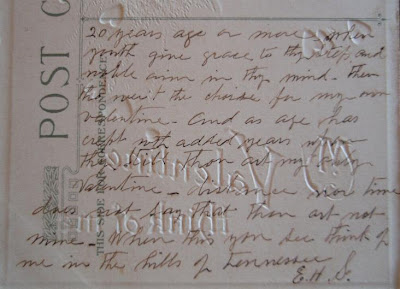 20 years age or more - when
youth give grace to thy step and
noble aim in thy mind. Then
thou wer't the choice for my own
valentine - And as age has
crept with added years upon
thee still thou art my only
Valentine - distance nor time
does not say that thou art not
mine - When this you see think of
me in the hills of Tennessee
E.H.S.
POST C
THIS SIDE FOR CORRESPONDENCE
My Valentine
Think of me